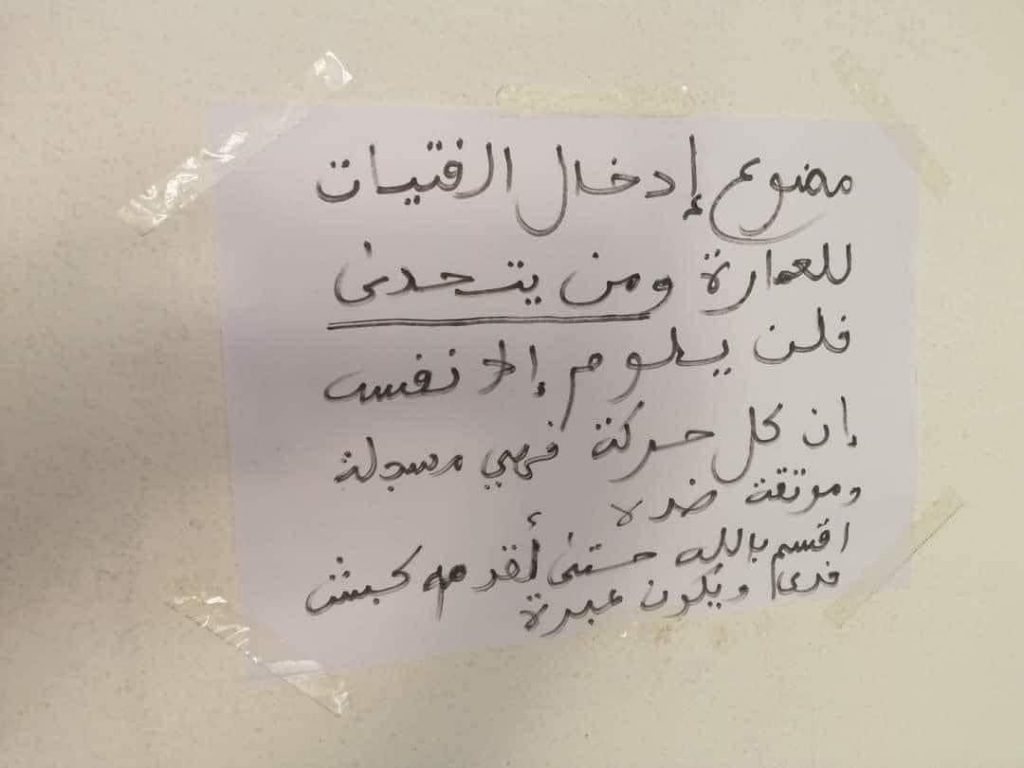 ممنوع إدخال الفتيات
للعمارة ومن يتحدى
فلن يلوم إلا نفسه
إن كل حركة فهي مسجلة
وموتقة ضده
اقسم بالله حتى أقدمه كبش
فدى ويكون عبرة